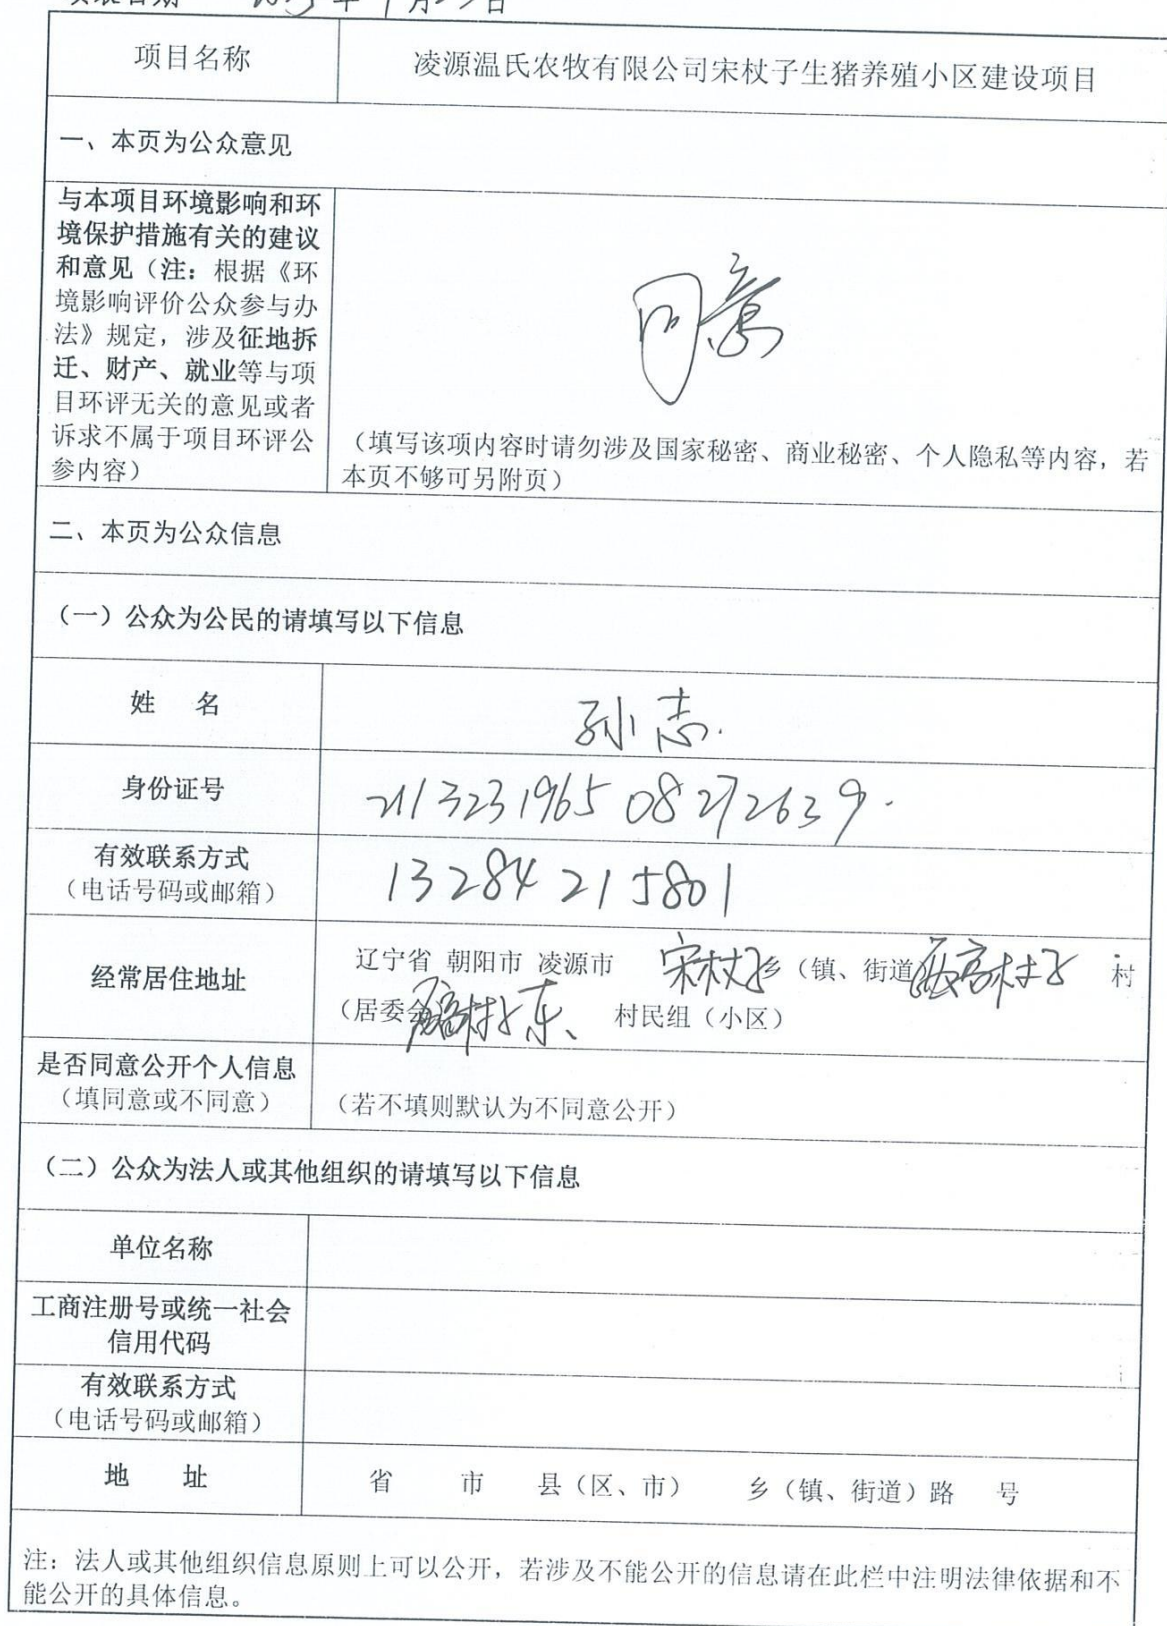 年 月 日
项目名称 凌源温氏农牧有限公司宋杖子生猪养殖小区建设项目
一、本页为公众意见
与本项目环境影响和环
境保护措施有关的建议
和意见（注：根据《环
境影响评价公众参与办
法》规定，涉及征地拆
迁、财产、就业等与项
目环评无关的意见或者
诉求不属于项目环评公
参内容）
同意
（填写该项内容时请勿涉及国家秘密、商业秘密、个人隐私等内容，若
本页不够可另附页）
二、本页为公众信息
（一）公众为公民的请填写以下信息
姓 名 孙志
身份证号 211323196508272639
有效联系方式
（电话号码或邮箱） 13284215801
经常居住地址
辽宁省 朝阳市 凌源市 宋杖子乡（镇、街道 村
（居委会 村民组（小区）
是否同意公开个人信息
（填同意或不同意） （若不填则默认为不同意公开）
（二）公众为法人或其他组织的请填写以下信息
单位名称
工商注册号或统一社会
信用代码
有效联系方式
（电话号码或邮箱）
地 址 省 市 县（区、市） 乡（镇、街道）路 号
注：法人或其他组织信息原则上可以公开，若涉及不能公开的信息请在此栏中注明法律依据和不
能公开的具体信息。